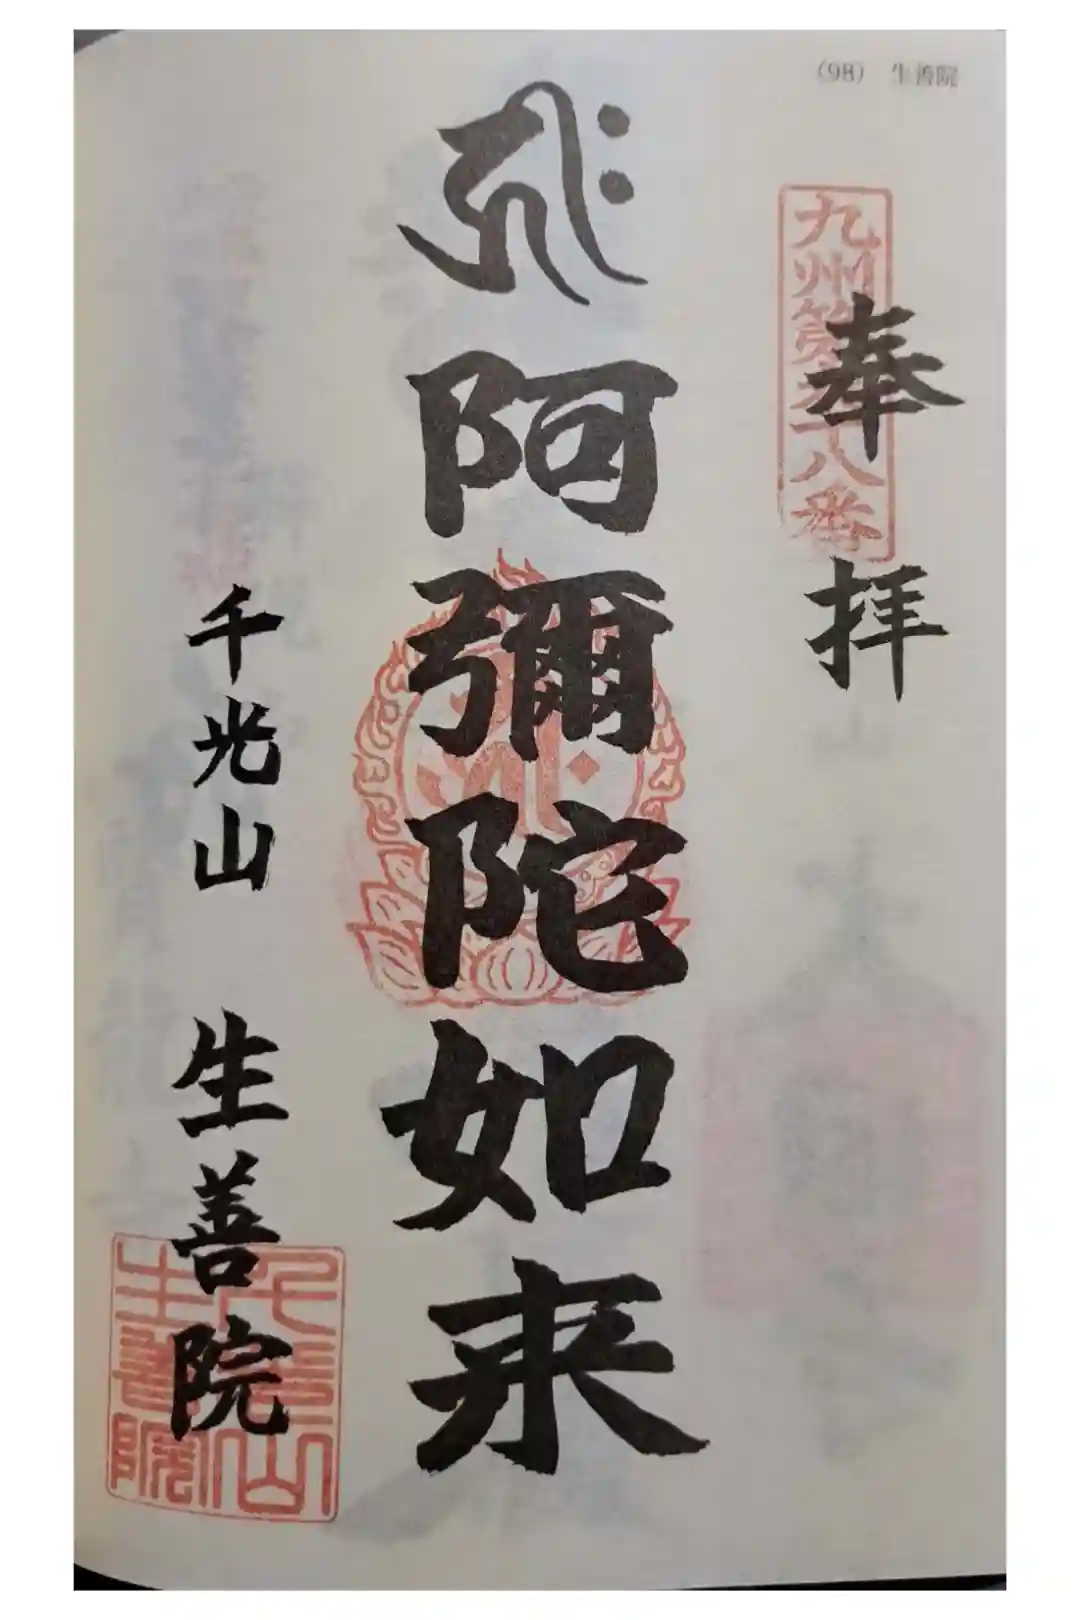 (98) 生善院
九州第九十八番
奉拝
阿彌陀如来
千光山 生善院
生善院